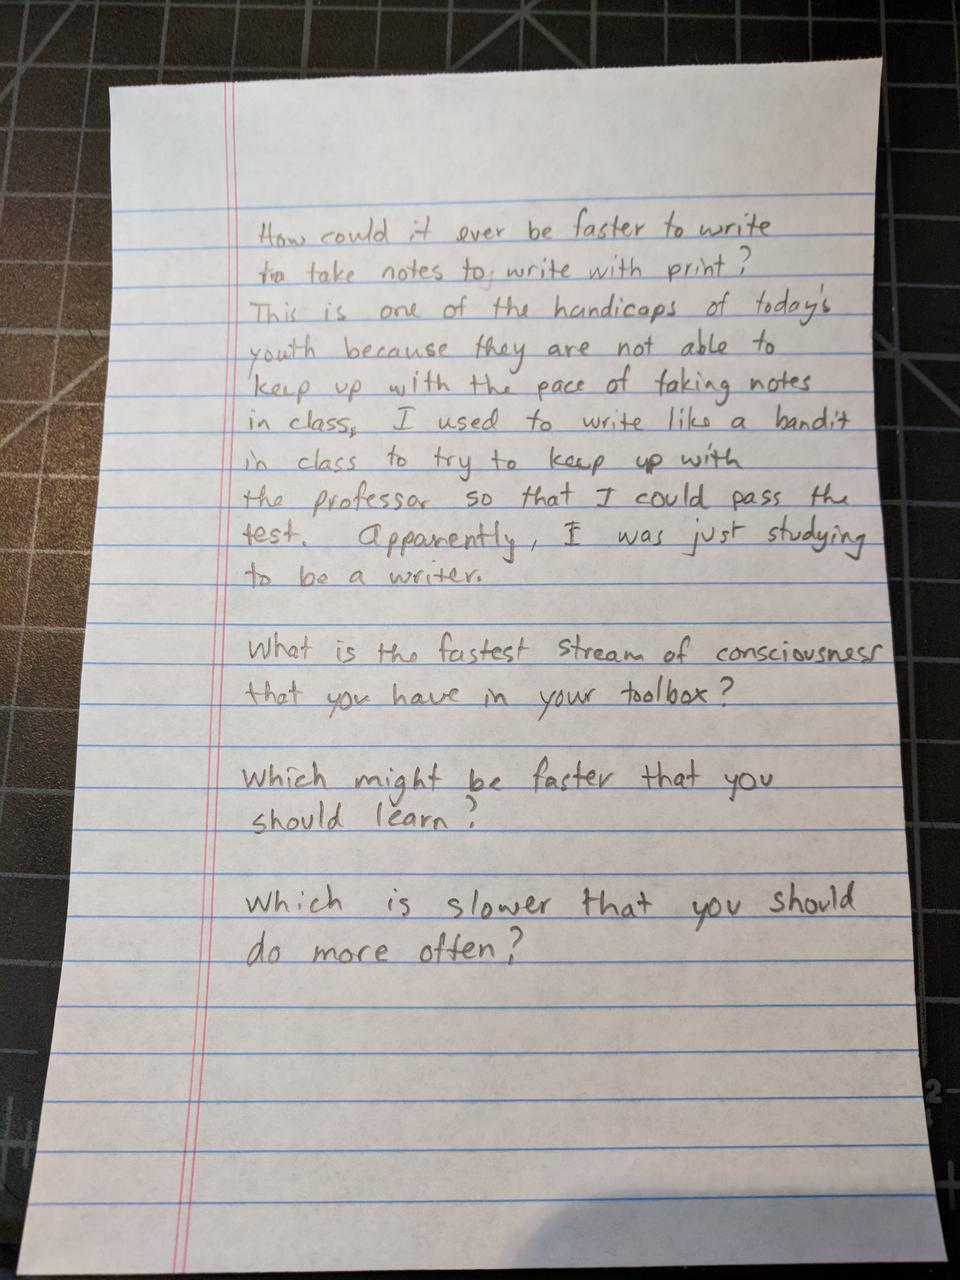 How could it ever be faster to write
to take notes to write with print?
This is one of the handicaps of today's
youth because they are not able to
keep up with the pace of taking notes
in class, I used to write like a bandit
in class to try to keep up with
the professor so that I could pass the
test. Apparently, I was just studying
to be a writer.
What is the fastest stream of consciousness
that you have in your toolbox?
Which might be faster that you
should learn?
Which is slower that you should
do more often?
2